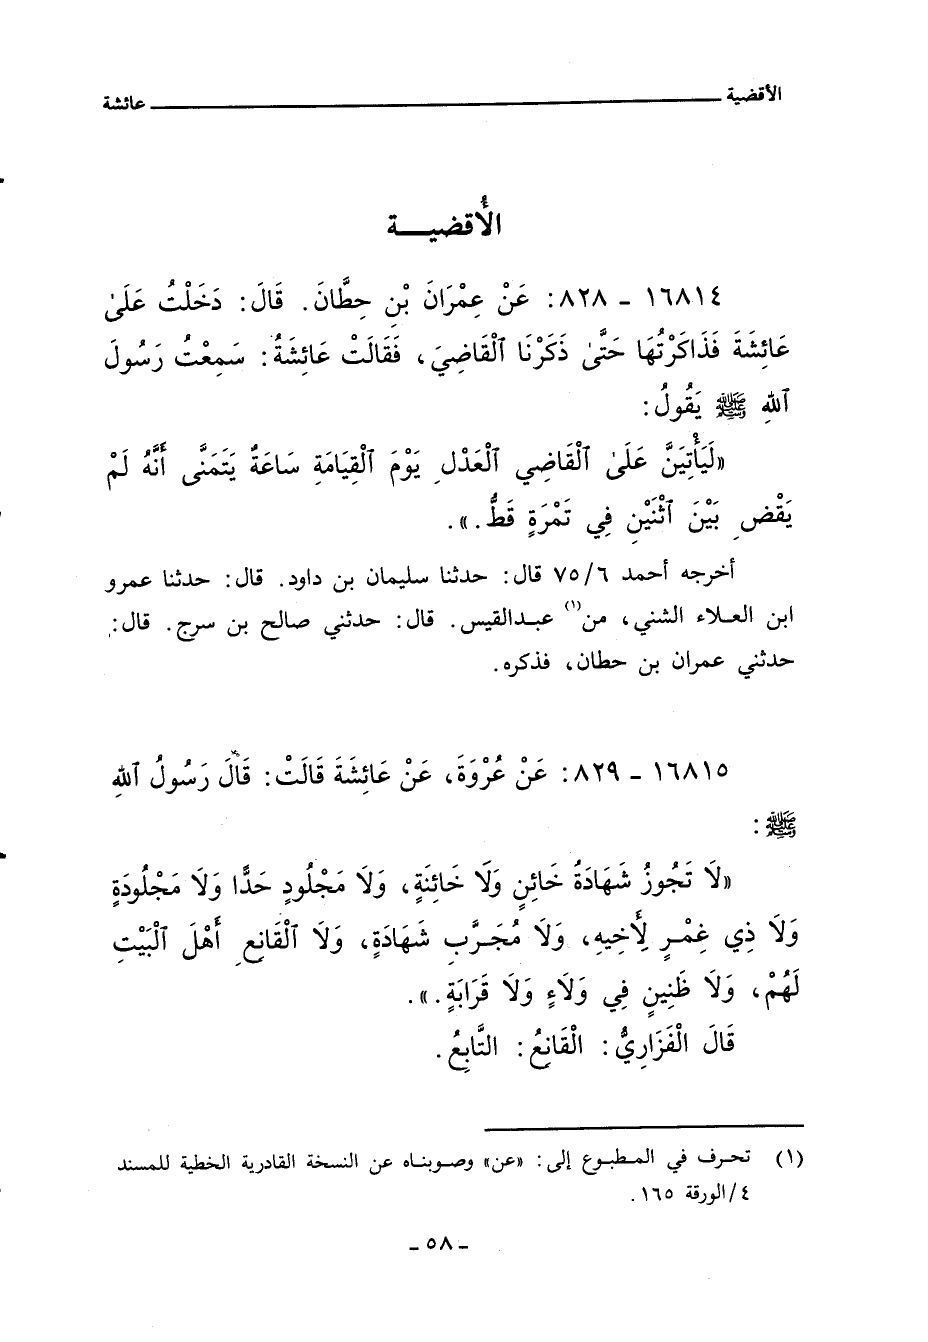 الأقضية عائشة
الأُقضيـــة
١٦٨١٤ - ٨٢٨: عَنْ عِمْرَانَ بْنِ حِطَّانَ. قَالَ: دَخَلْتُ عَلَىٰ
عَائِشَةَ فَذَاكَرْتُهَا حَتَّىٰ ذَكَرْنَا ٱلْقَاضِيَ، فَقَالَتْ عَائِشَةُ: سَمِعْتُ رَسُولَ
ٱللهِ ﷺ يَقُولُ:
«لَيَأْتِيَنَّ عَلَىٰ ٱلْقَاضِي ٱلْعَدْلِ يَوْمَ ٱلْقِيَامَةِ سَاعَةٌ يَتَمَنَّى أَنَّهُ لَمْ
يَقْضِ بَيْنَ ٱثْنَيْنِ فِي تَمْرَةٍ قَطُّ.».
أخرجه أحمد ٧٥/٦ قال: حدثنا سليمان بن داود. قال: حدثنا عمرو
ابن العـلاء الشني، من(١) عبـدالقيس. قال: حدثني صالح بن سرج. قال:
حدثني عمران بن حطان، فذكره.
١٦٨١٥ - ٨٢٩: عَنْ عُرْوَةَ، عَنْ عَائِشَةَ قَالَتْ: قَالَ رَسُولُ ٱللهِ
ﷺ:
«لَا تَجُوزُ شَهَادَةُ خَائِنٍ وَلَا خَائِنَةٍ، وَلَا مَجْلُودٍ حَدًّا وَلَا مَجْلُودَةٍ
وَلَا ذِي غِمْـرٍ لِأَخِيهِ، وَلَا مُجَـرَّبِ شَهَادَةٍ، وَلَا ٱلْقَانِعِ أَهْلَ ٱلْبَيْتِ
لَهُمْ، وَلَا ظَنِينٍ فِي وَلَاءٍ وَلَا قَرَابَةٍ.».
قَالَ الْفَزَارِيُّ: الْقَانِعُ: التَّابِعُ.
(١) تحرف في المـطبـوع إلى: «عن» وصـوبنـاه عن النسخة القادرية الخطية للمسند
٤/الورقة ١٦٥.
- ٥٨ -